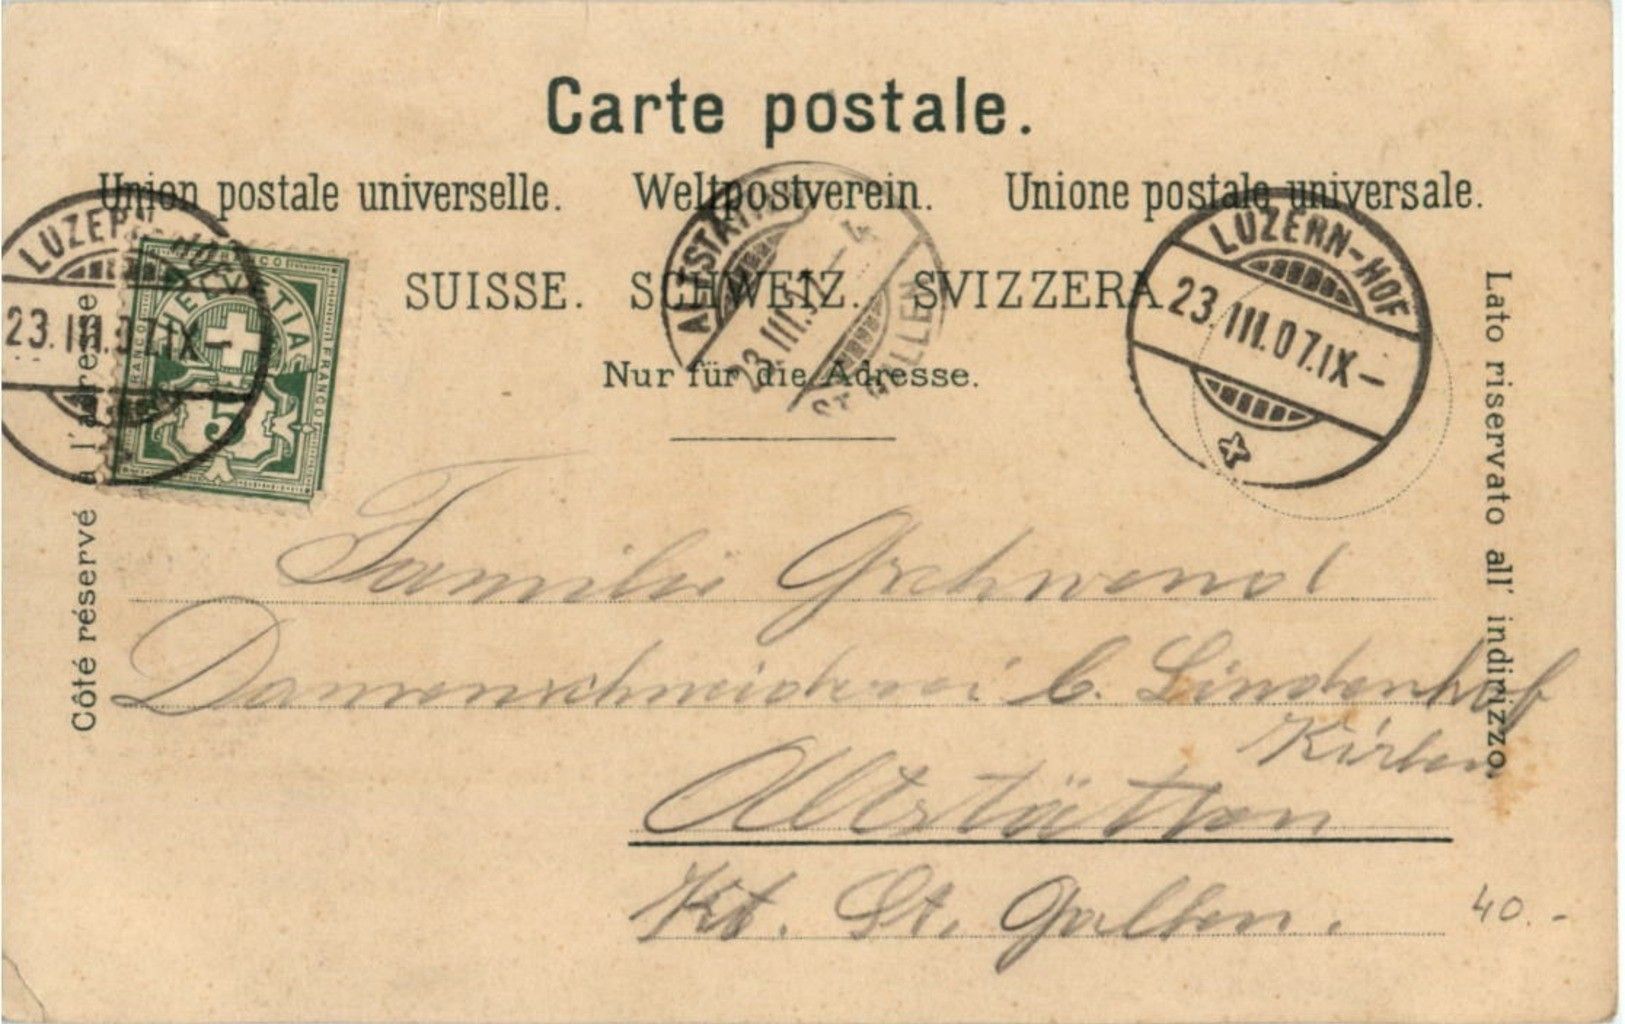 Carte postale.
Union postale universelle. Weltpostverein. Unione postale universale.
SUISSE. SCHWEIZ. SVIZZERA
Nur für die Adresse.
Côté réservé à l'adresse
Lato riservato all' indirizzo.
LUZERN-HOF
23.III.07.IX-
HELVETIA
FRANCO
5
ALTSTÄTTEN
23.III.07.-4
ST. GALLEN
LUZERN-HOF
23.III.07.IX-
Familie Gschwend
Damenschneiderei b. Lindenhof
Altstätten
Kt. St. Gallen.
40.-